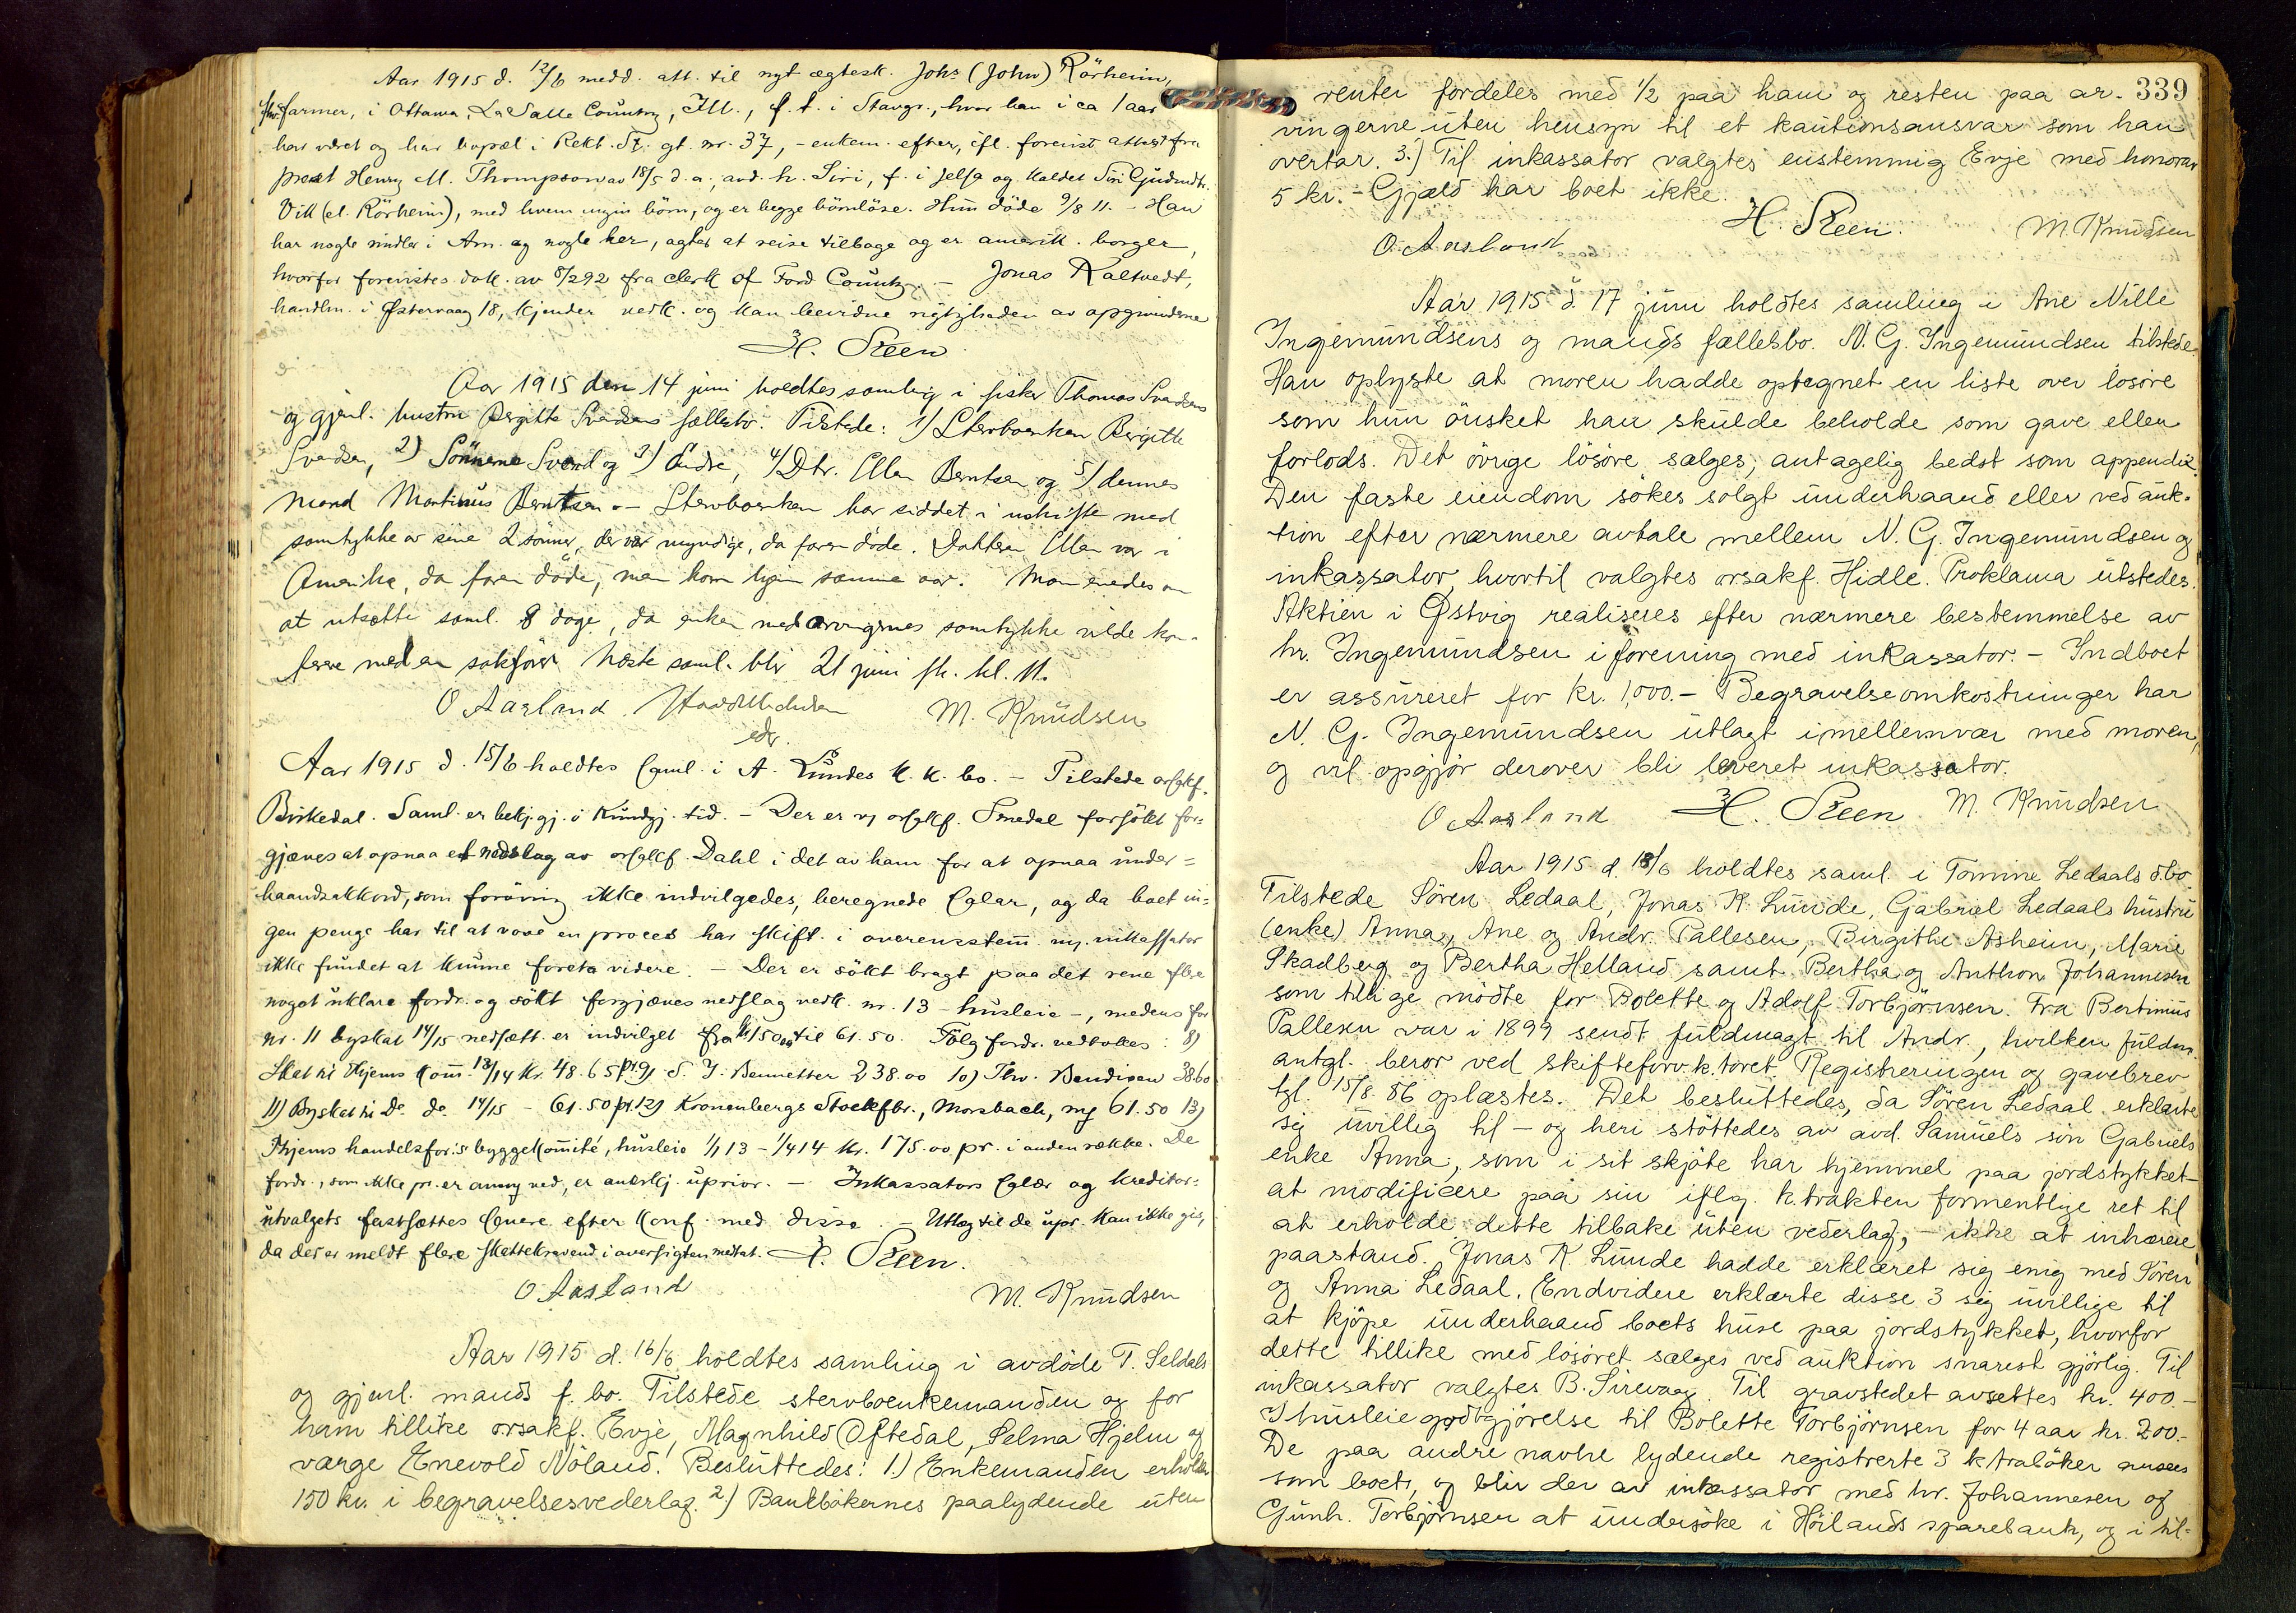 Aar 1915 d. 12/6 medd. att. til nyt ægtesk. Johs (John) Rörheim,
farmer, i Ottawa, La Salle Country, Ill., f. t. i Stavgr., hvor han i ca 1 aar
har været og har bopæl i Rekt. St. gt. nr. 37, - enkem. efter, ifl. forevist attest fra
prest Henry M. Thompson av 18/5 d. a., avd. h. Siri, f. i Jelsø og kaldet Siri Gudmdtr.
Vik (el. Rörheim), med hvem ingen börn, og er begge börnlöse. Hun döde 9/8 11. - Han
har nogle midler i Am. og nogle her, agter at reise tilbage og er amerik. borger,
hvorfor forevistes dok. av 8/2 92 fra clerk of Ford County. - Jonas Kaltvedt,
handlm. i Østervaag 18, kjender vedk. og kan bevidne rigtigheden av opgivnderne
H. Steen
Aar 1915 den 14 juni holdtes samling i fisker Thomas Svendsens
og gjenl. hustru Bergitte Svendsens fællesbo. Tilstede: 1) Stervboenken Bergitte
Svendsen, 2) Sönnerne Svend og 3) Endre, 4) Dtr. Ellen Berntsen og 5) dennes
mand Martinus Berntsen. - Stervboenken har siddet i uskifte med
samtykke av sine 2 sönner, der var myndige, da faren döde. Datteren Ellen var i
Amerika, da faren döde, men kom hjem samme aar. Man enedes om
at utsætte saml. 8 dage, da enken med arvingernes samtykke vilde kon-
ferere med en sakförer. Næste saml. blir 21 juni fk. kl. 11.
O Aasland M. Knudsen
edr.
Aar 1915 d. 15/6 holdtes saml. i A. Lundes k. k. bo. - Tilstede orsakf.
Birkedal. Saml. er bekj. gj. i Kundgj. tid. - Der er v/ orsakf. Smedal forsökt for=
gjæves at opnaa et nedslag av orsakf. Dahl i det av ham for at opnaa under=
haandsakkord, som foröwrig ikke indvilgedes, beregnede salær, og da boet in=
gen penge har til at vove en proces har skift. i overensstem. m/ inkassator
ikke fundet at kunne foreta videre. - Der er sökt bragt paa det rene flere
noget uklare fordr. og sökt forgjæves nedslag vedk. nr. 13 - husleie -, medens for
nr. 11 byskat 14/15 nedsætt. er indvilget fra kr 150,00 til 61.50. Fölg. fordr. vedtokes: 8)
Skat til Thjems kom. 13/14 kr. 48.65 pr. 9) S. J. Bennetter 238.00 10) Thv. Bendixen 38.60
11) Byskat til Do. do. 14/15 - 61.50 pr. 12) Kronenbergs Stockfbr., Morsbach, m/ 61.50 13)
Thjems handelsfor.s byggekomité, husleie 1/1 13 - 1/4 14 kr. 175.00 pr. i anden række. De
fordr., som ikke pr. er anmrg. ved, er anerkj. uprior. - Inkassators salær og kreditor=
utvalgets fastsættes senere efter konf. med disse. - Utlæg til de upr. kan ikke gis,
da der er meldt flere skattekrav end i oversigten medtat. H. Steen.
O Aasland M. Knudsen
Aar 1915 d. 16/6 holdtes samling i avdöde T. Seldals
og gjenl. mands f. bo. Tilstede stervboenkemanden og for
ham tillike orsakf. Evje, Magnhild Oftedal, Selma Hjelm og
værge Enevold Nöland. Besluttedes: 1.) Enkemanden erholder
150 kr. i begravelsesvederlag. 2.) Bankbökernes paalydende uten
339
renter fordeles med 1/2 paa ham og resten paa ar-
vingerne uten hensyn til et kautionsansvar som han
overtar. 3.) Til inkassator valgtes enstemmig Evje med honorar
5 kr. - Gjæld har boet ikke.
H. Steen. M. Knudsen
O Aasland
Aar 1915 d. 17 juni holdtes samling i Ane Nille
Ingemundsens og mands fællesbo. N. G. Ingemundsen tilstede.
Han oplyste at moren hadde optegnet en liste over lösöre
som hun önsket han skulde beholde som gave eller
forlods. Det övrige lösöre sælges, antagelig bedst som appendix.
Den faste eiendom sökes solgt underhaand eller ved auk-
tion efter nærmere avtale mellem N. G. Ingemundsen og
inkassator, hvortil valgtes orsakf. Hidle. Proklama utstedes.
Aktien i Østvig realiseres efter nærmere bestemmelse av
hr. Ingemundsen i forening med inkassator. - Indboet
er assureret for kr. 1,000.- Begravelsesomkostninger har
N. G. Ingemundsen utlagt i mellemvær med moren,
og vil opgjör derover bli leveret inkassator.
O Aasland H. Steen M. Knudsen
Aar 1915 d. 18/6 holdtes saml. i Tomine Ledaals d.bo.
Tilstede Sören Ledaal, Jonas K. Lunde, Gabriel Ledaals hustru
(enke) Anna, Ane og Andr. Pallesen, Birgithe Asheim, Marie
Skadberg og Bertha Helland samt Bertha og Anthon Johannesen
som tillige mödte for Bolette og Adolf Torbjörnsen. Fra Bertinius
Pallesen var i 1899 sendt fuldmagt til Andr., hvilken fuldm.
antgl. beror ved skifteforv.k.toret. Registreringen og gavebrev
tgl. 15/8. 86 oplæstes. Det besluttedes, da Sören Ledaal erklærte
sig uvillig til - og heri stöttedes av avd. Samuels sön Gabriels
enke Anna, som i sit skjöte har hjemmel paa jordstykket -
at modificere paa sin iflg. k.trakten formentlige ret til
at erholde dette tilbake uten vederlag, - ikke at inhærere
paastand. Jonas K. Lunde hadde erklæret sig enig med Sören
og Anna Ledaal. Endvidere erklærte disse 3 sig uvillige til
at kjöpe underhaand boets huse paa jordstykket, hvorfor
dette tillike med lösöret sælges ved auktion snarest gjörlig. Til
inkassator valgtes B. Sirevaag. Til gravstedet avsettes kr. 400.-
I husleiegodtgjörelse til Bolette Torbjörnsen for 4 aar kr. 200.-
De paa andre navne lydende registrerte 3 k.traböker ansees
som boets, og blir der av inkassator med hr. Johannesen og
Gunh. Torbjörnsen at undersöke i Höilands sparebank, og i til-